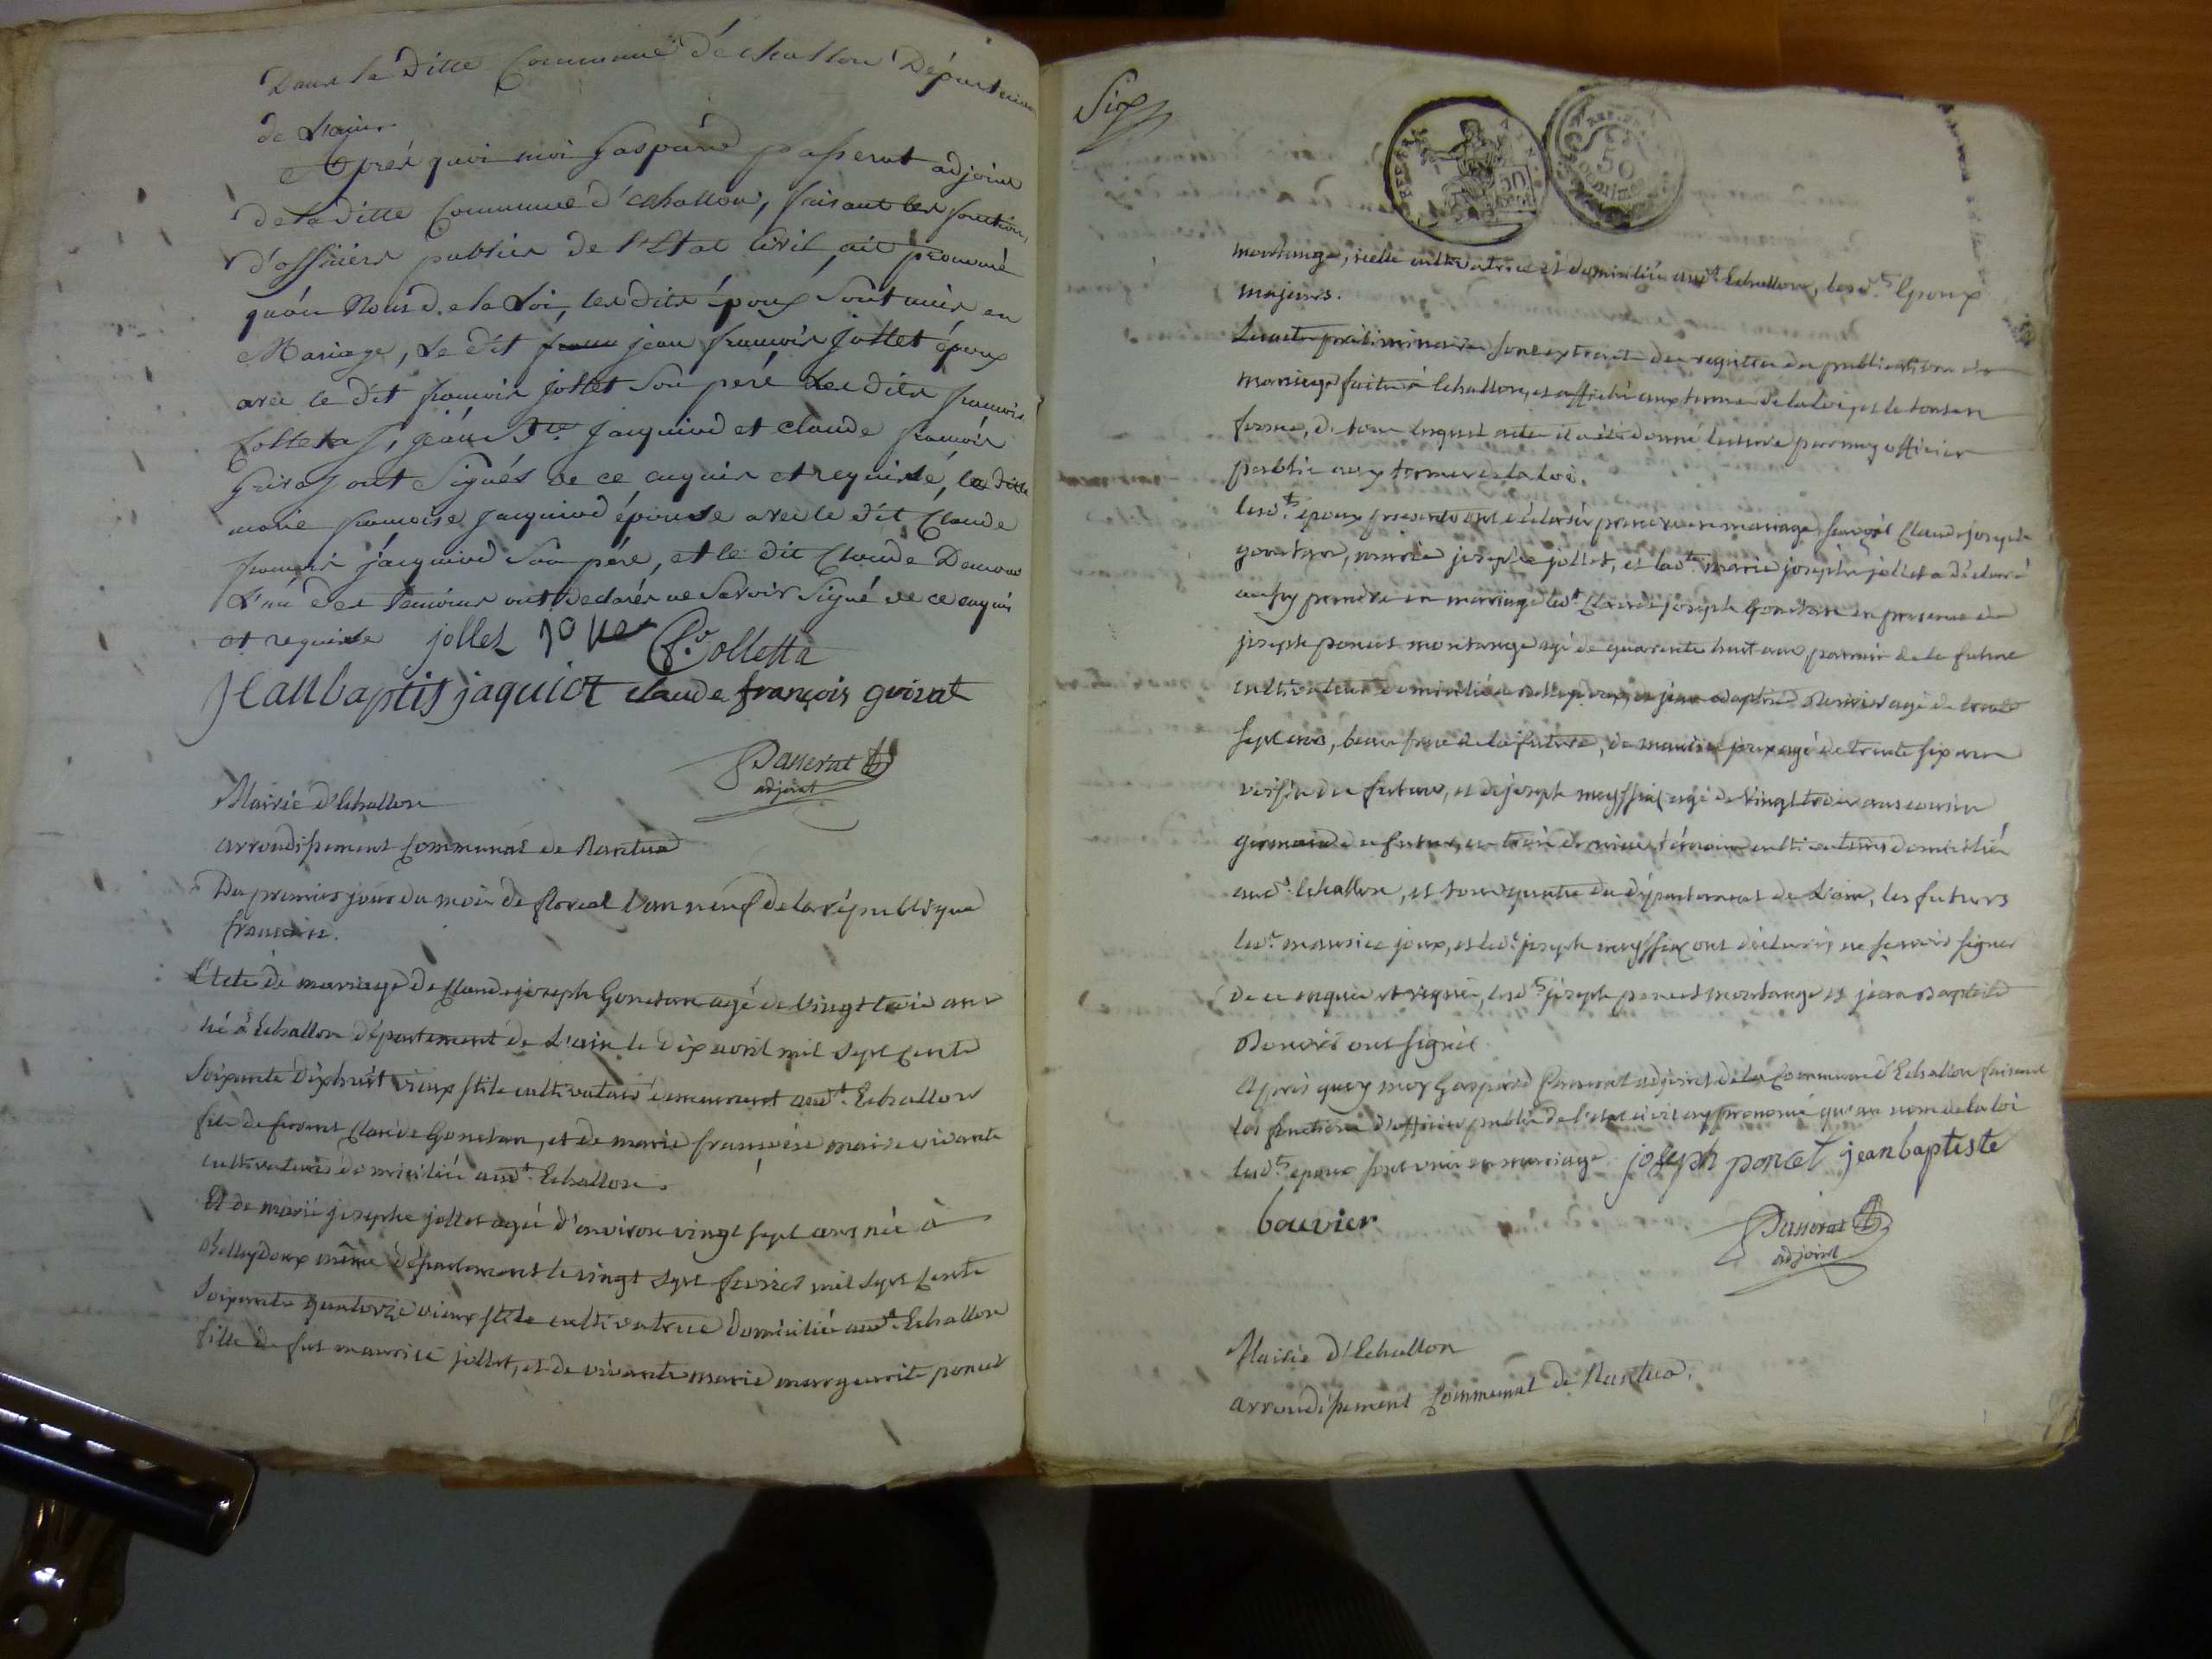 Dans la ditte Commune d'échallon Départem
de L'ain
Aprés quoi moi Gaspard passerat adjoint
de la ditte Commune d'echallon, faisant les fonctions
d'officier public de l'Etat Civil, ait prononcé
qu'au Nom de la Loi, les dits époux sont unis en
Mariage, Le dit jean francois jollet époux
avec le dit francois jollet son pere Les dits francois
Colletaz, jean Bte jacquiod et claude francois
Goiraz ont Signés de ce enquis et requis, la ditte
marie francoise jacquiod épouse avec le dit Claude
francois jacquiod son pére, et le dit Claude
L'un des temoins ont declarés ne Savoir Signé de ce enquis
et requis jollet C. f. Colletta
Jeanbaptis jaquiot claude françois goirat
Passerat
adjoint
Mairie d'Echallon
arrondissement Communal de Nantua
Du premier jour du mois de floreal l'an neuf de la république
francaise.
Acte de mariage de Claude joseph Gonetan agé de vingt trois ans
né à Echallon département de L'ain le dix avril mil sept cents
Soixante dixhuit vieux stile cultivateur demeurant audt. Echallon
fils de Claude Gonetan, et de marie francoise vivante
cultivateurs domiciliés audt. Echallon.
Et de marie josephe jollet agée d'environ vingt sept ans née à
Belleydoux même département le vingt sept fevrier mil sept cents
Soixante quatorze vieux stile cultivatrice domiciliée audt. Echallon
fille de fut maurice jollet, et de vivante marie marguerite poncet
Six
REP. FRA.
AIN
50
50
centimes
montange, icelle cultivatrice et domiciliée audt. Echallon, lesdts. Epoux
majeurs.
Les actes preliminaires sont extraits des registres des publications de
mariage faites à Echallon, et affiché aux termes de la loi, et le tout en
forme, de tous lesquels actes il a été donné lecture par moy officier
public aux termes de la loi.
lesdts. epoux presents ont déclarés prendre en mariage scavoir Claude joseph
gonetan, marie josephe jollet, et ladte. marie josephe jollet a déclaré
aussy prendre en mariage ledt. Claude joseph Gonetan en presence de
joseph poncet montange agé de quarente huit ans, parrain de la future
cultivateur domicilié à Belleydoux, et jean baptiste Bouvier agé de trente
sept ans, beau frere de la future, de maurice joux agé de trente six ans
voisin du futur, et de joseph meyssiax agé de vingt trois ans cousin
germain du futur, les trois derniers témoins cultivateurs domiciliés
audt. Echallon, et tous quatre du département de L'ain, les futurs
ledt. maurice joux, et ledt. joseph meyssiax ont déclarés ne scavoir signer
de ce enquis et requis, lesdts. joseph poncet montange et jean Baptiste
Bouvier ont signés.
Après quoy moy Gaspard Passerat adjoint de la Commune d'Echallon faisant
les fonctions d'officier public de l'etat civil ay prononcé qu'au nom de la loi
lesdts. epoux sont unis en mariage. joseph poncet jeanbaptiste
bouvier
Passerat
adjoint
Mairie d'Echallon
arrondissement Communal de Nantua.